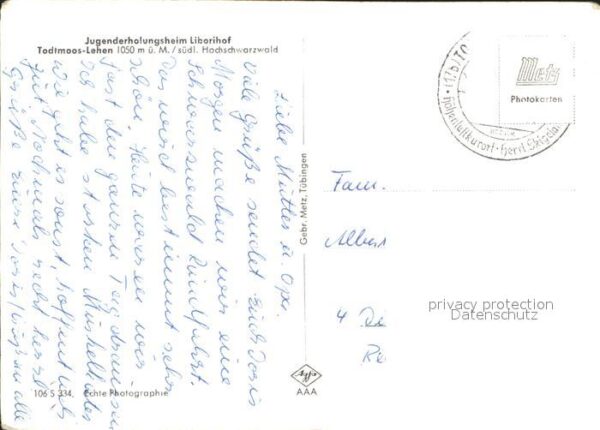 Jugenderholungsheim Liborihof
Todtmoos-Lehen 1050 m ü. M./südl. Hochschwarzwald
Liebe Mutter u. Opa.
Viele Grüße sendet euch
Morgen machen wir eine
Schwarzwald Rundfahrt.
Das wird bestimmt sehr
schön. Heute waren wir
fast den ganzen Tag draußen
Ich habe starken Muskelkater
Wie geht es sonst, hoffentlich
gut. Nochmals recht herzl.
Grüße an alle
Gebr. Metz, Tübingen
Metz
Photokarten
Höhenluftkurort
Fam.
Albert
4
privacy protection
Datenschutz
Agfa
AAA
106 S 334. Echte Photographie